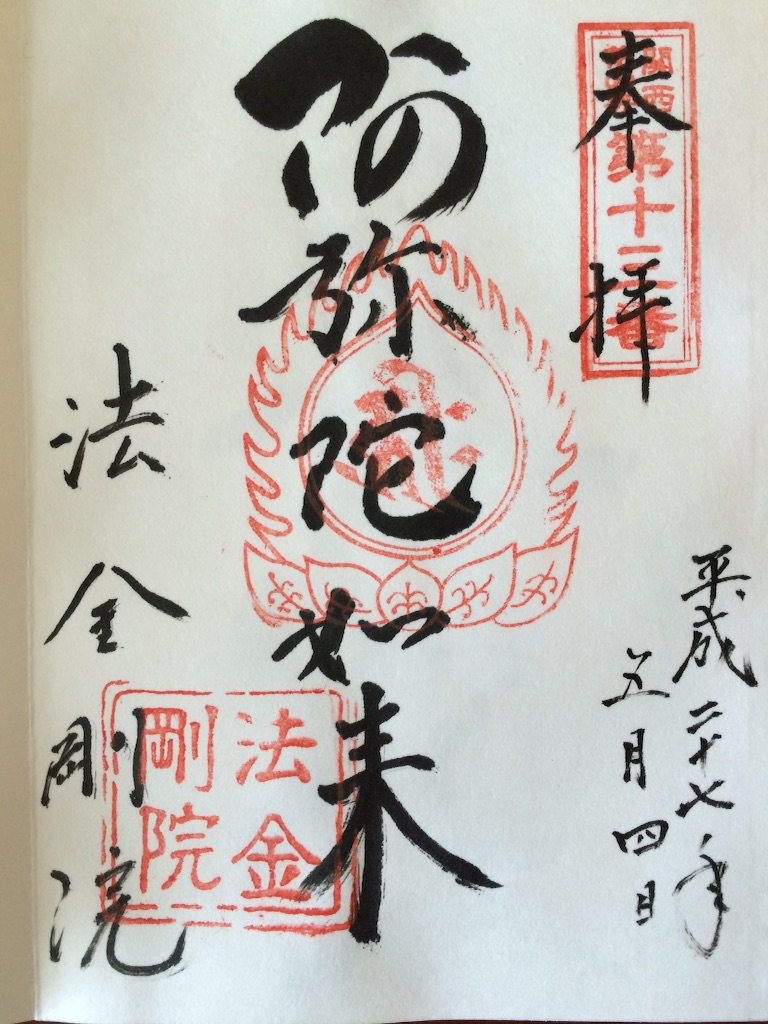 奉拝
関西
第十三番
平成二十七年
五月四日
阿弥陀如来
法金剛院
法金
剛院